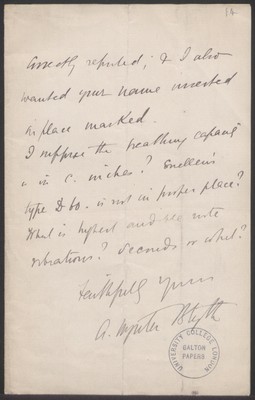 14
correctly reported; & I also
wanted your name inserted
in place marked.
I suppose the breathing capacity
is in c. inches? Snellen's
type D 60. is not in proper place?
What is highest audible note
vibrations? Seconds or what?
Faithfully Yours
A. Wynter Blyth
UNIVERSITY COLLEGE LONDON
GALTON
PAPERS